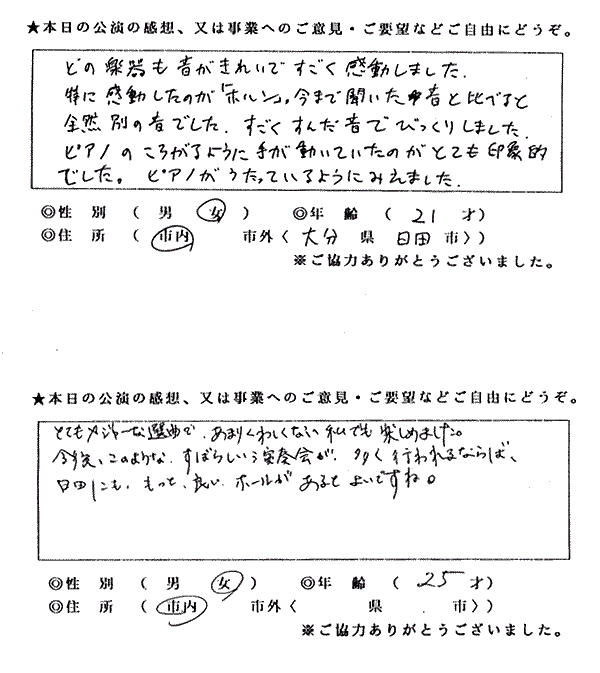 ★本日の公演の感想、又は事業へのご意見・ご要望などご自由にどうぞ。
どの楽器も音がきれいですごく感動しました.
特に感動したのが「ホルン」。今まで聞いた中音と比べると
全然別の音でした. すごくすんだ音でびっくりしました.
ピアノのころがるように手が動いていたのがとても印象的
でした。 ピアノがうたっているようにみえました.
◎性 別 ( 男 女 ) ◎年 齢 ( 21 才)
◎住 所 ( 市内 市外〈 大分 県 日田 市〉)
※ご協力ありがとうございました。
★本日の公演の感想、又は事業へのご意見・ご要望などご自由にどうぞ。
とてもメジャーな選曲で、あまりくわしくない私でも楽しめました。
今後、このような、すばらしいう演奏会が、多く行われるならば、
日田にも、もっと、良い、ホールがあるとよいですね。
◎性 別 ( 男 女 ) ◎年 齢 ( 25 才)
◎住 所 ( 市内 市外〈 県 市〉)
※ご協力ありがとうございました。